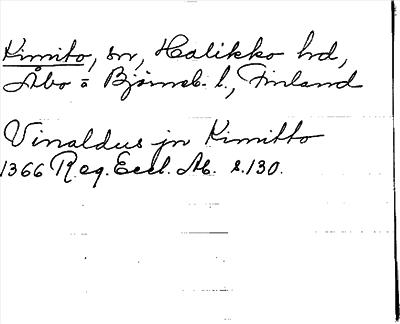 Kimito, sn, Halikko hd,
Åbo o Björneb. l., Finland
Vinaldus jn Kimitto
1366 Reg. Eccl. Ab. s. 130.